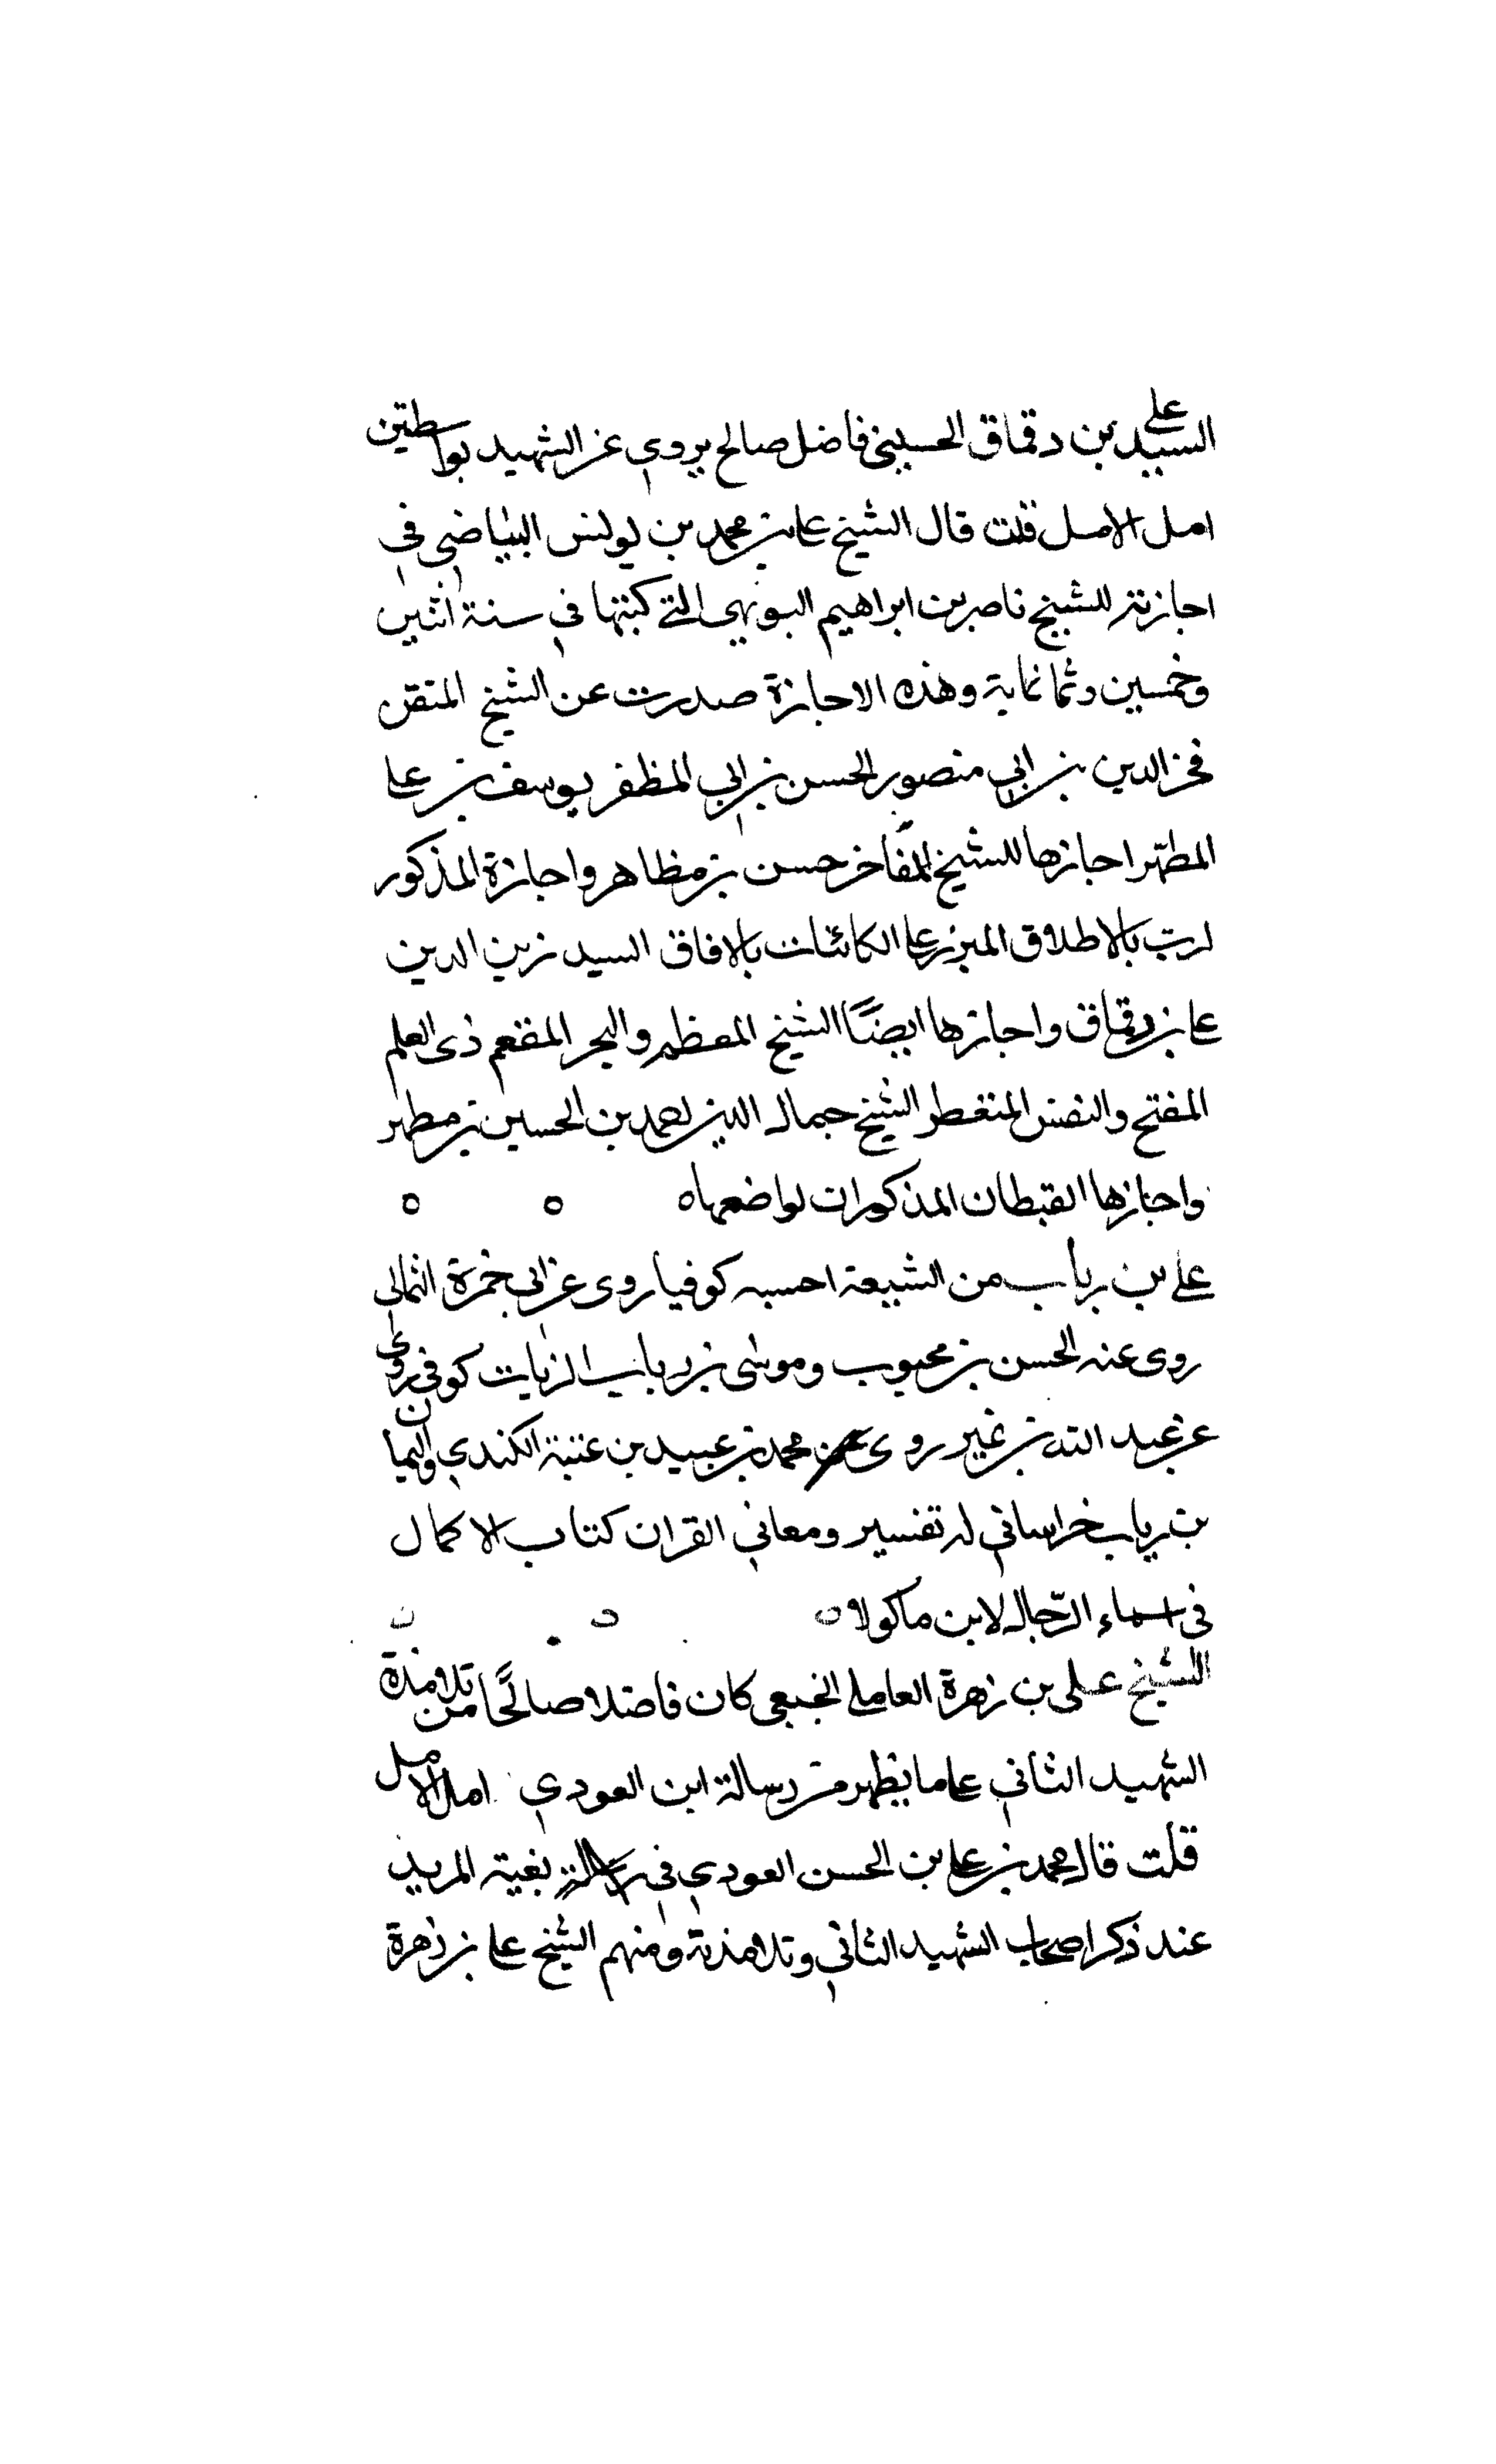 السيد علي بن دقماق الحسيني فاضل صالح يروي عن الشهيد بواسطتين
امل الامل قلت قال الشيخ علي بن محمد بن يونس البياضي في
اجازته للشيخ ناصر بن ابراهيم البويهي التي كتبتها في سنة اثنين
وخمسين وثمانماية وهذه الاجازة صدرت عن الشيخ المتقن
فخر الدين بن ابي منصور الحسن بن ابي المظفر يوسف بن علي
المطهر اجازها للشيخ المفاخر حسن بن مظاهر واجازة المذكور
لرب بالاطلاق المبرز علي الكائنات بالافاق السيد زين الدين
علي بن دقماق واجازها ايضًا الشيخ المعظم والبحر المقعم ذى العلم
والنفس الشيخ جمال الدين احمد بن الحسين بن مطهر
واجازها القبطان المذكوران لواضعها ه ه ه
علي بن رياب من الشيعة احسبه كوفيا روى عن ابي حمزة الثمالي
روى عنه الحسن بن محبوب وموسى بن رياب الزيات كوفي روى
عن عبد الله بن نمير روى عن محمد بن عبيد بن عتبة الكندي واليمان
بن رياب خراساني له تفسير ومعاني القران كتاب الاكمال
في اسماء الرّجال لابن ماكولا ه
الشيخ علي بن زهرة العاملي الجبعي كان فاضلا صالحًا من تلامذة
الشهيد الثاني علي ما يظهر من رسالة ابن العودي امل الامل
قلت قال محمد بن علي بن الحسن العودي في رسالة بغية المريد
عند ذكر اصحاب الشهيد الثاني وتلامذته ومنهم الشيخ علي بن زهرة